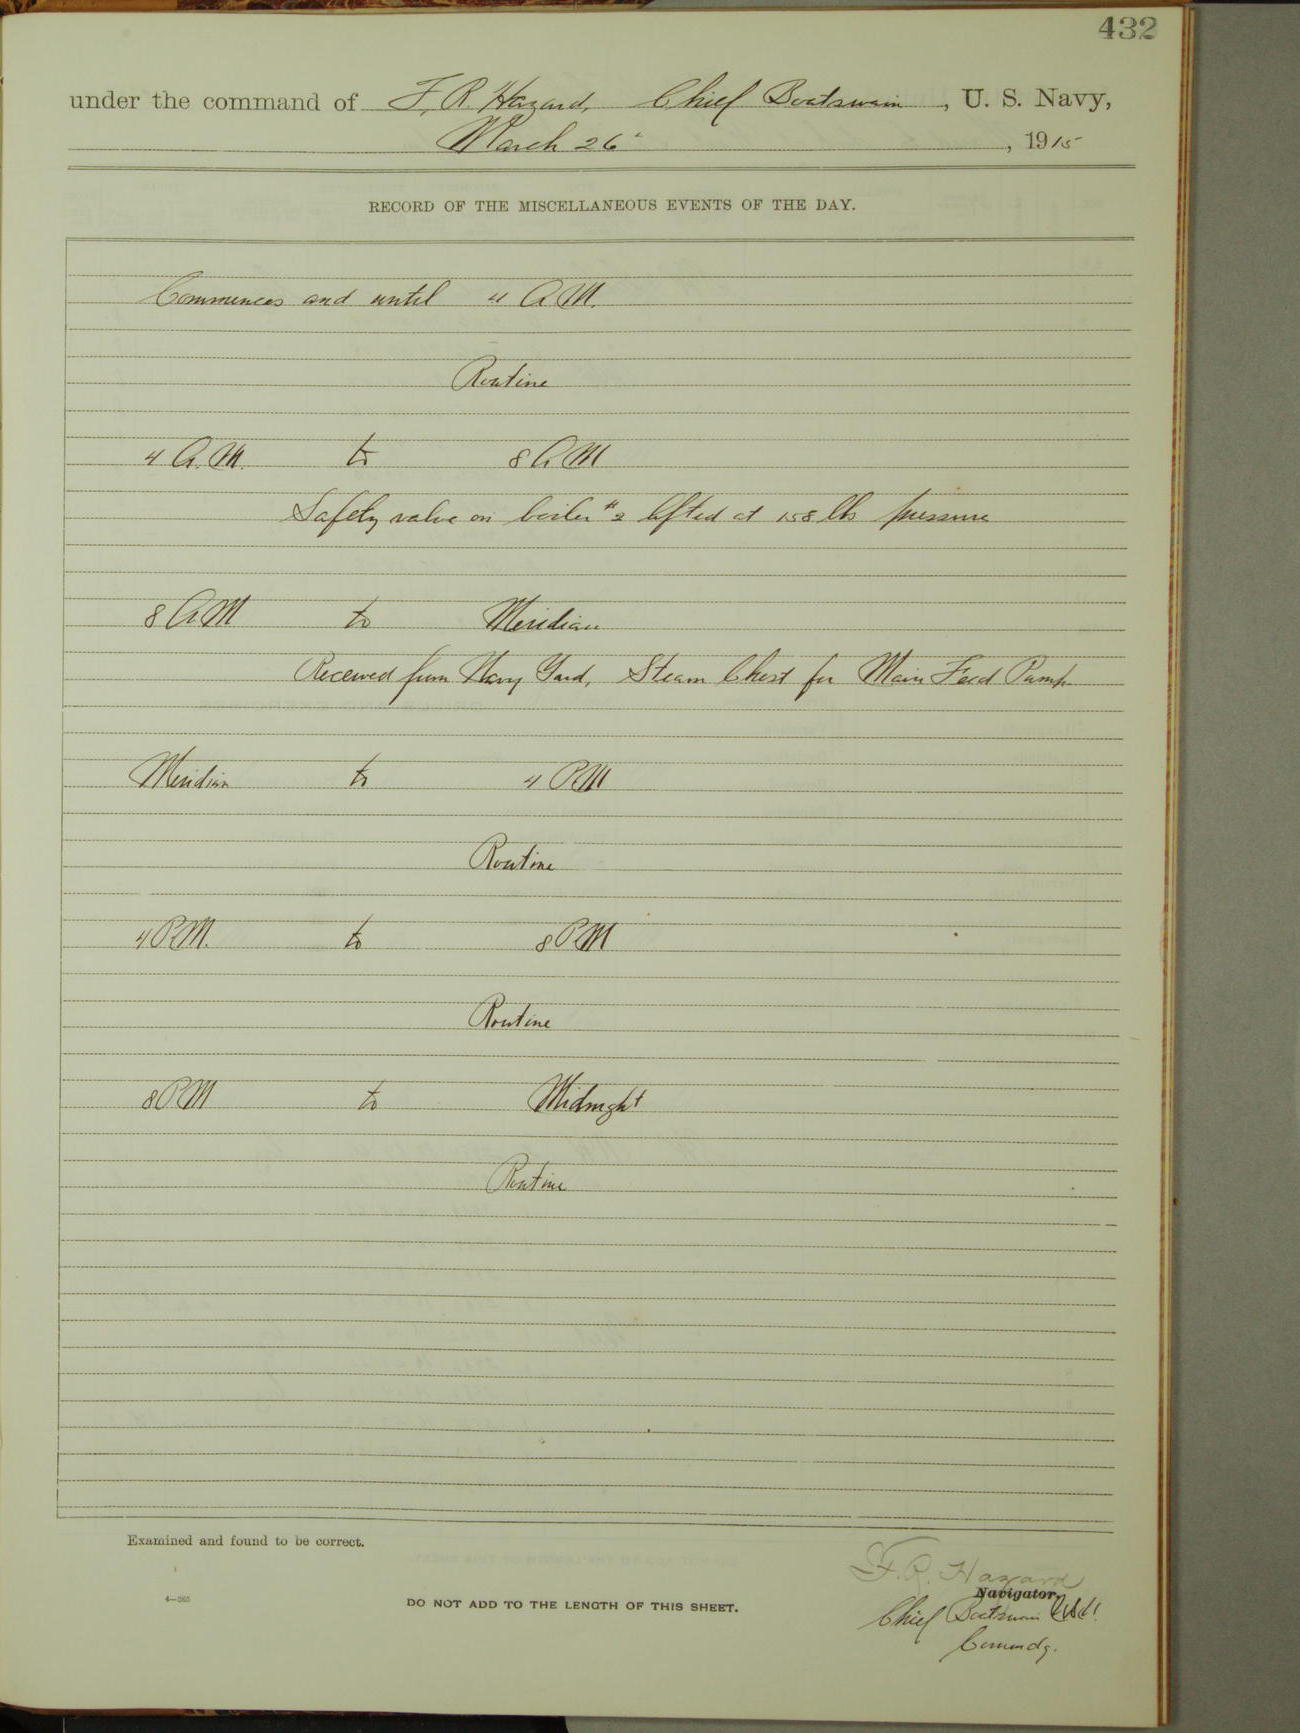 432
under the command of F. R. Hazard, Chief Boatswain, U. S. Navy,
March 26", 1915
RECORD OF THE MISCELLANEOUS EVENTS OF THE DAY.
Commences and until 4 A.M.
Routine
4 A.M. to 8 A M
Safety valve on boiler #2 lifted at 158 lbs pressure
8 A M to Meridian
Received from Navy Yard, Steam Chest for Main Feed Pump
Meridian to 4 P.M
Routine
4 P.M. to 8 P.M
Routine
8 P M to Midnight
Routine
Examined and found to be correct.
F. R. Hazard
Navigator.
4—265
DO NOT ADD TO THE LENGTH OF THIS SHEET.
Chief Boatswain U.S.N.
Commdg.